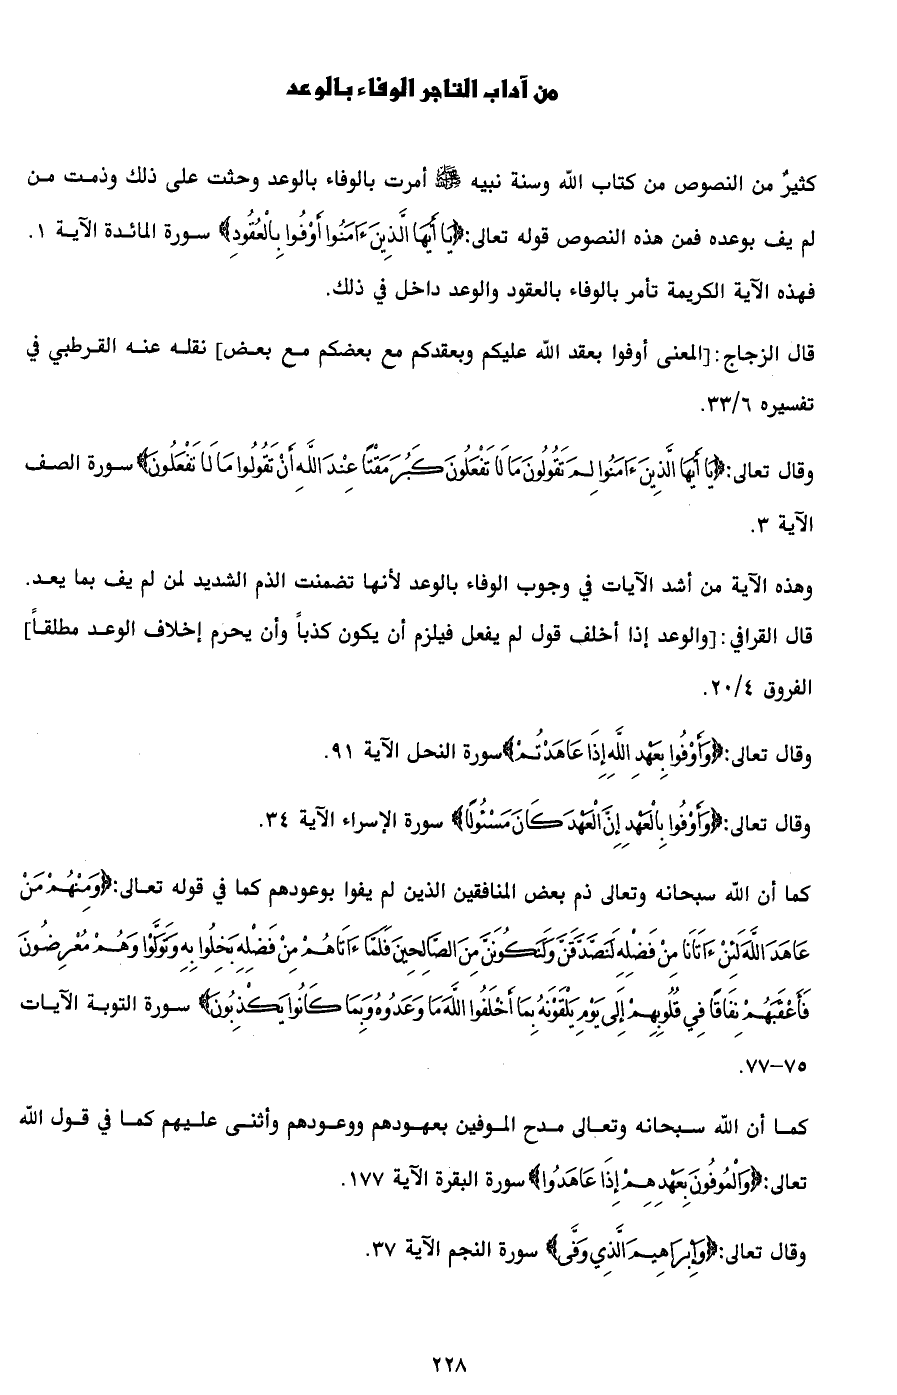 من آداب التاجر الوفاء بالوعد
كثيرٌ من النصوص من كتاب الله وسنة نبيه ﷺ أمرت بالوفاء بالوعد وحثت على ذلك وذمت من
لم يف بوعده فمن هذه النصوص قوله تعالى:﴿يَا أَيُّهَا الَّذِينَ ءَامَنُوا أَوْفُوا بِالْعُقُودِ﴾ سورة المائدة الآية ١.
فهذه الآية الكريمة تأمر بالوفاء بالعقود والوعد داخل في ذلك.
قال الزجاج:[المعنى أوفوا بعقد الله عليكم وبعقدكم مع بعضكم مع بعض] نقله عنه القرطبي في
تفسيره ٣٣/٦.
وقال تعالى:﴿يَا أَيُّهَا الَّذِينَ ءَامَنُوا لِمَ تَقُولُونَ مَا لَا تَفْعَلُونَ كَبُرَ مَقْتًا عِنْدَ اللَّهِ أَنْ تَقُولُوا مَا لَا تَفْعَلُونَ﴾ سورة الصف
الآية ٣.
وهذه الآية من أشد الآيات في وجوب الوفاء بالوعد لأنها تضمنت الذم الشديد لمن لم يف بما يعد.
قال القرافي:[والوعد إذا أخلف قول لم يفعل فيلزم أن يكون كذباً وأن يحرم إخلاف الوعد مطلقاً]
الفروق ٢٠/٤.
وقال تعالى:﴿وَأَوْفُوا بِعَهْدِ اللَّهِ إِذَا عَاهَدْتُمْ﴾سورة النحل الآية ٩١.
وقال تعالى:﴿وَأَوْفُوا بِالْعَهْدِ إِنَّ الْعَهْدَ كَانَ مَسْئُولًا﴾ سورة الإسراء الآية ٣٤.
كما أن الله سبحانه وتعالى ذم بعض المنافقين الذين لم يفوا بوعودهم كما في قوله تعالى:﴿وَمِنْهُمْ مَنْ
عَاهَدَ اللَّهَ لَئِنْ ءَاتَانَا مِنْ فَضْلِهِ لَنَصَّدَّقَنَّ وَلَنَكُونَنَّ مِنَ الصَّالِحِينَ فَلَمَّا ءَاتَاهُمْ مِنْ فَضْلِهِ بَخِلُوا بِهِ وَتَوَلَّوْا وَهُمْ مُعْرِضُونَ
فَأَعْقَبَهُمْ نِفَاقًا فِي قُلُوبِهِمْ إِلَى يَوْمِ يَلْقَوْنَهُ بِمَا أَخْلَفُوا اللَّهَ مَا وَعَدُوهُ وَبِمَا كَانُوا يَكْذِبُونَ﴾ سورة التوبة الآيات
٧٥–٧٧.
كما أن الله سبحانه وتعالى مدح الموفين بعهودهم ووعودهم وأثنى عليهم كما في قول الله
تعالى:﴿وَالْمُوفُونَ بِعَهْدِهِمْ إِذَا عَاهَدُوا﴾ سورة البقرة الآية ١٧٧.
وقال تعالى:﴿وَإِبْرَاهِيمَ الَّذِي وَفَّى﴾ سورة النجم الآية ٣٧.
٢٢٨